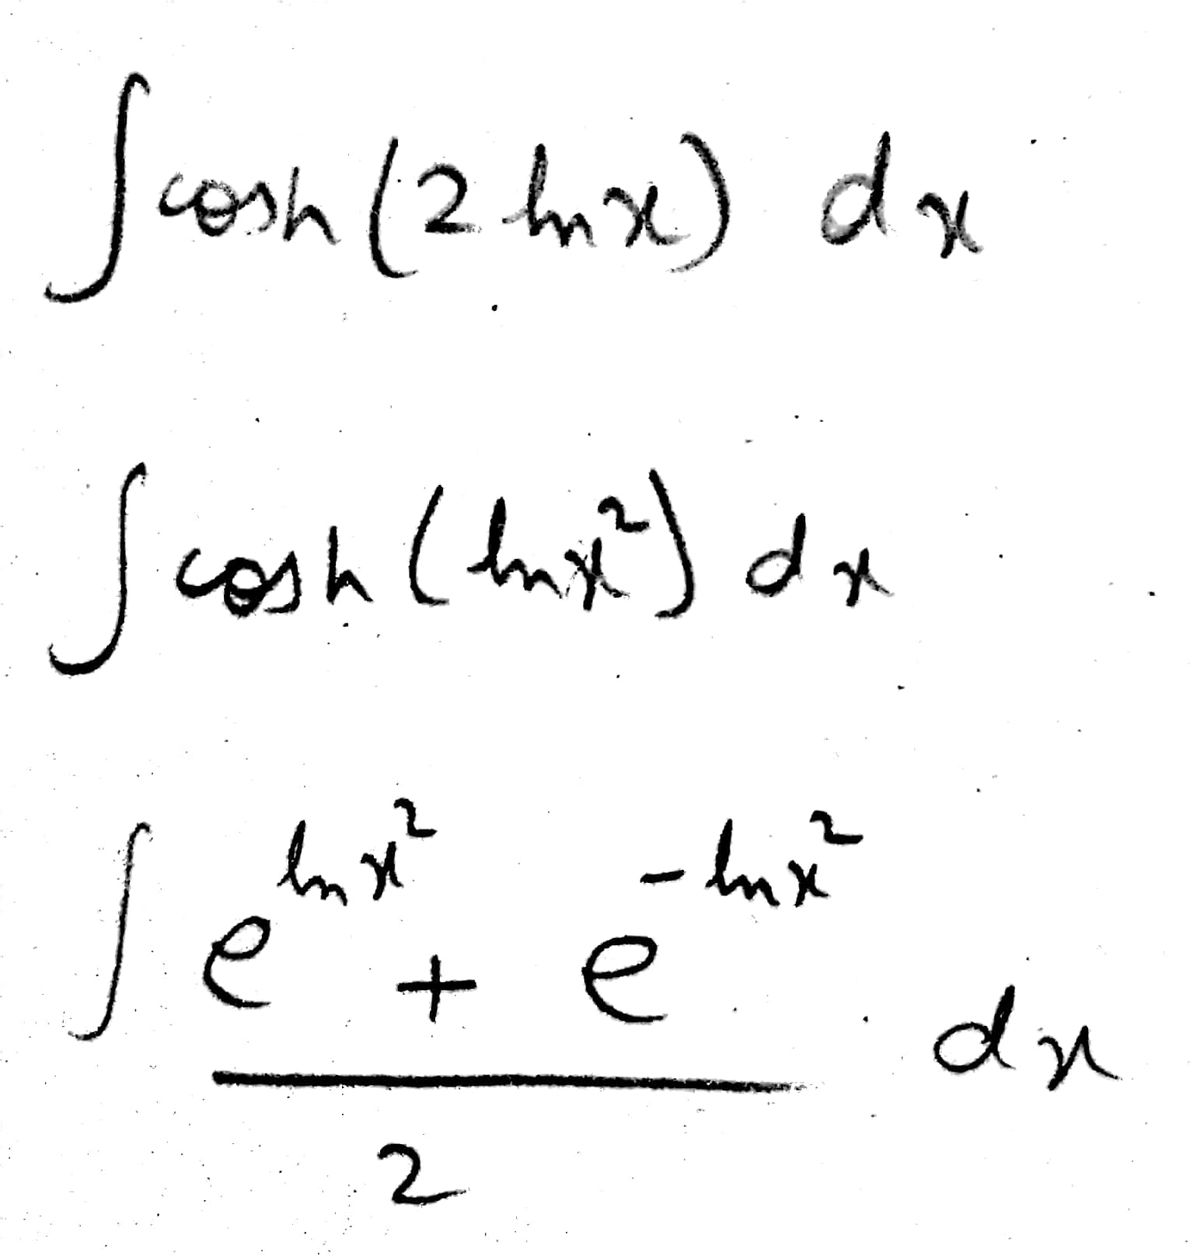 ∫ cosh (2 ln x) dx
∫ cosh (ln x²) dx
∫ (e^(ln x²) + e^(-ln x²)) / 2 dx